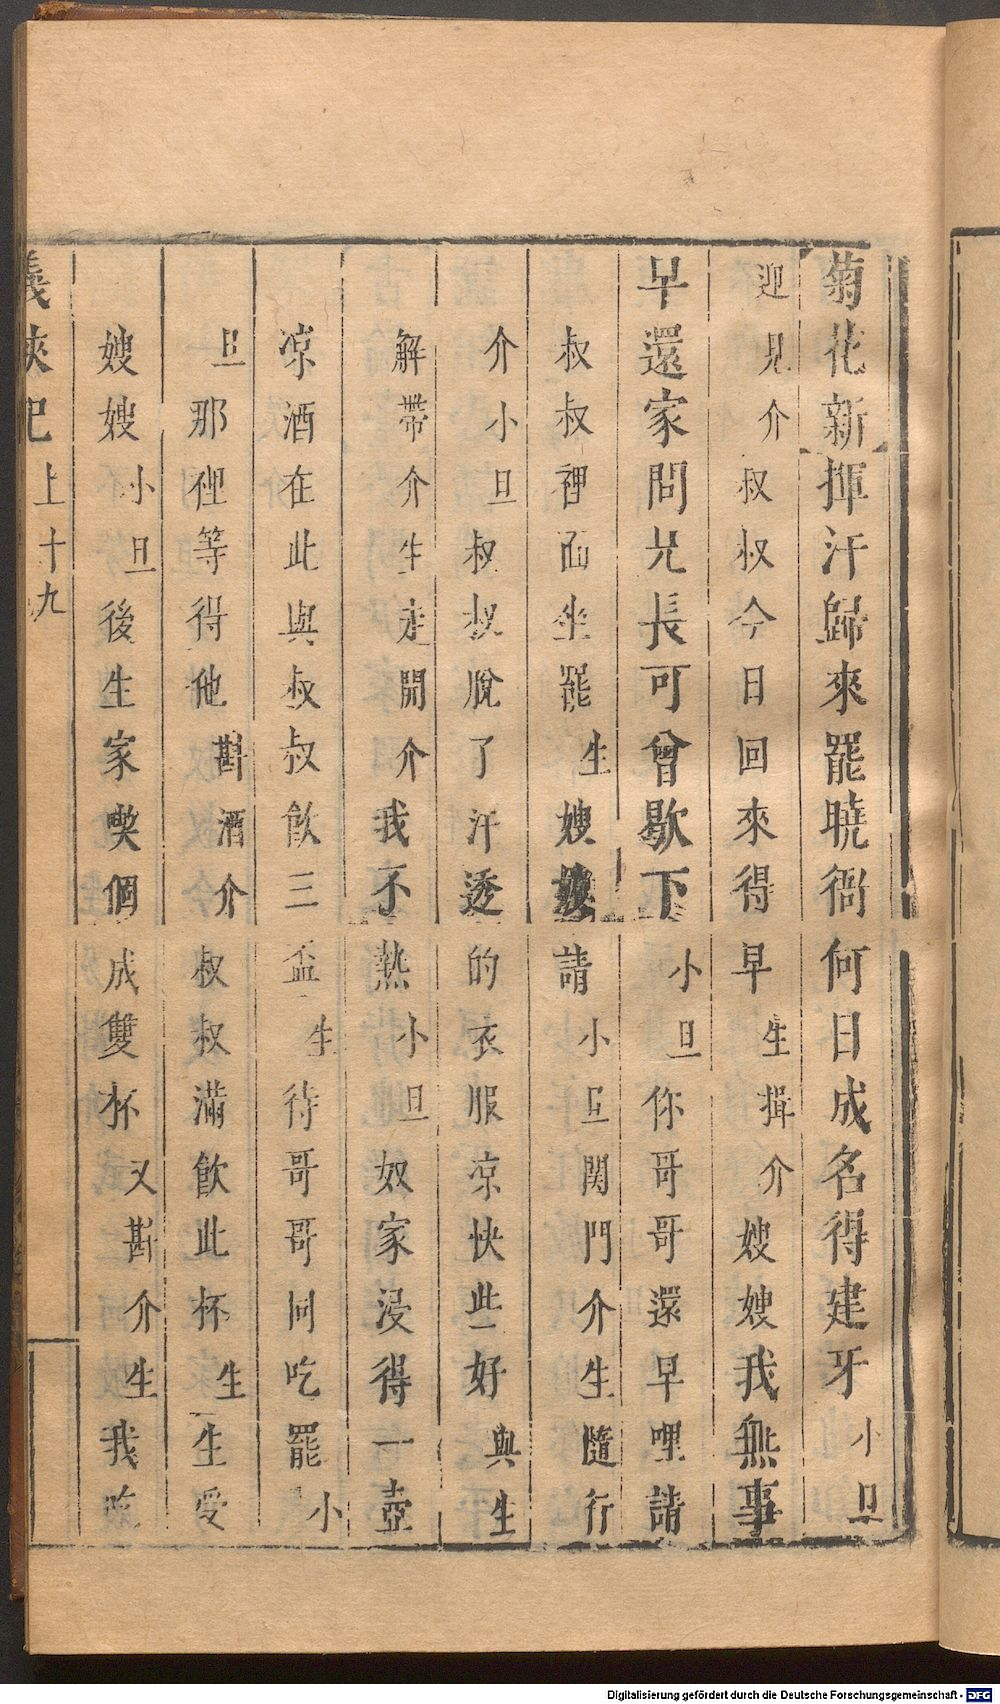 菊花新揮汗歸來罷曉衙何日成名得建牙小旦
迎見介叔叔今日回來得早生揖介嫂嫂我無事
早還家問兄長可曾歇下小旦你哥哥還早哩請
叔叔裡面坐罷生嫂嫂請小旦関門介生隨行
介小旦叔叔脫了汗透的衣服凉快些好與生
解帶介生走開介我不熱小旦奴家浸得一壺
凉酒在此與叔叔飲三盃生待哥哥同吃罷小
旦那裡等得他斟酒介叔叔滿飲此杯生生受
嫂嫂小旦後生家喫個成雙杯又斟介生我吃
義俠記上十九
Digitalisierung gefördert durch die Deutsche Forschungsgemeinschaft - DFG